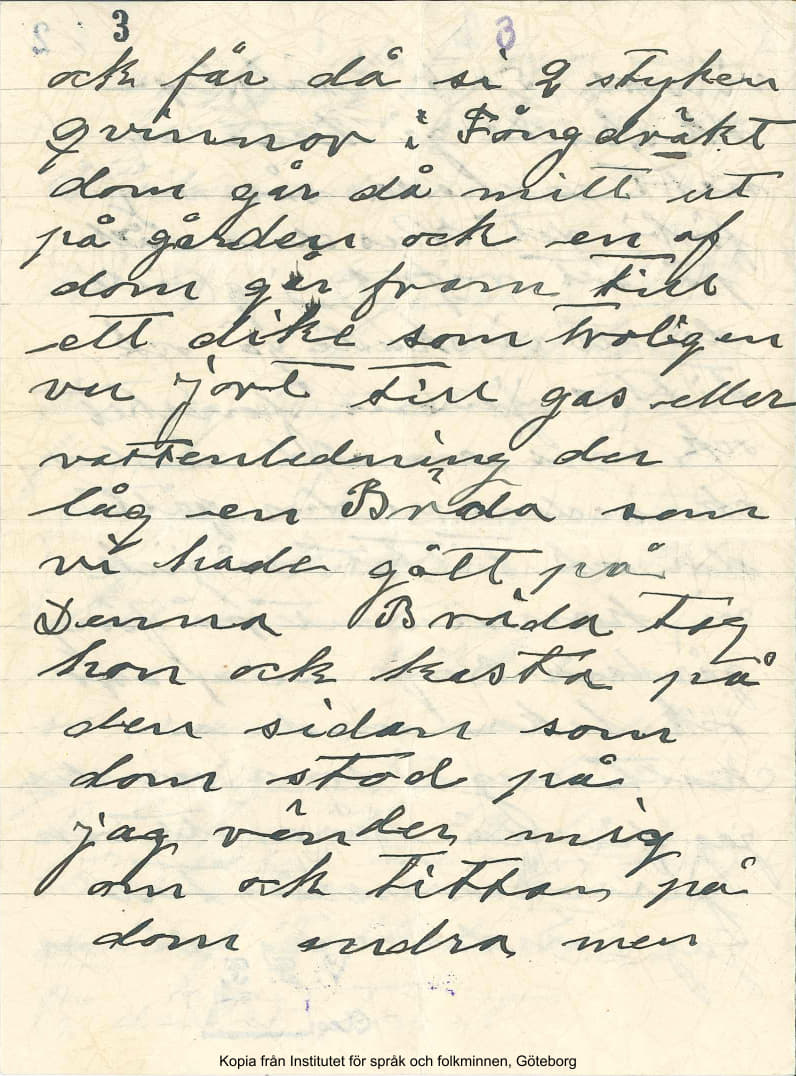 3 3
ock får då si 2 styken
qvinnor i Fångdräkt
dom går då mitt ut
på gården ock en af
dom går fram till
ett dike som troligen
var jort till gas eller
vattenledning der
låg en Bräda som
vi hade gått på
Denna Bräda tog
hon ock kasta på
den sidan som
dom stod på
jag vänder mig
om ock tittar på
dom andra men
Kopia från Institutet för språk och folkminnen, Göteborg